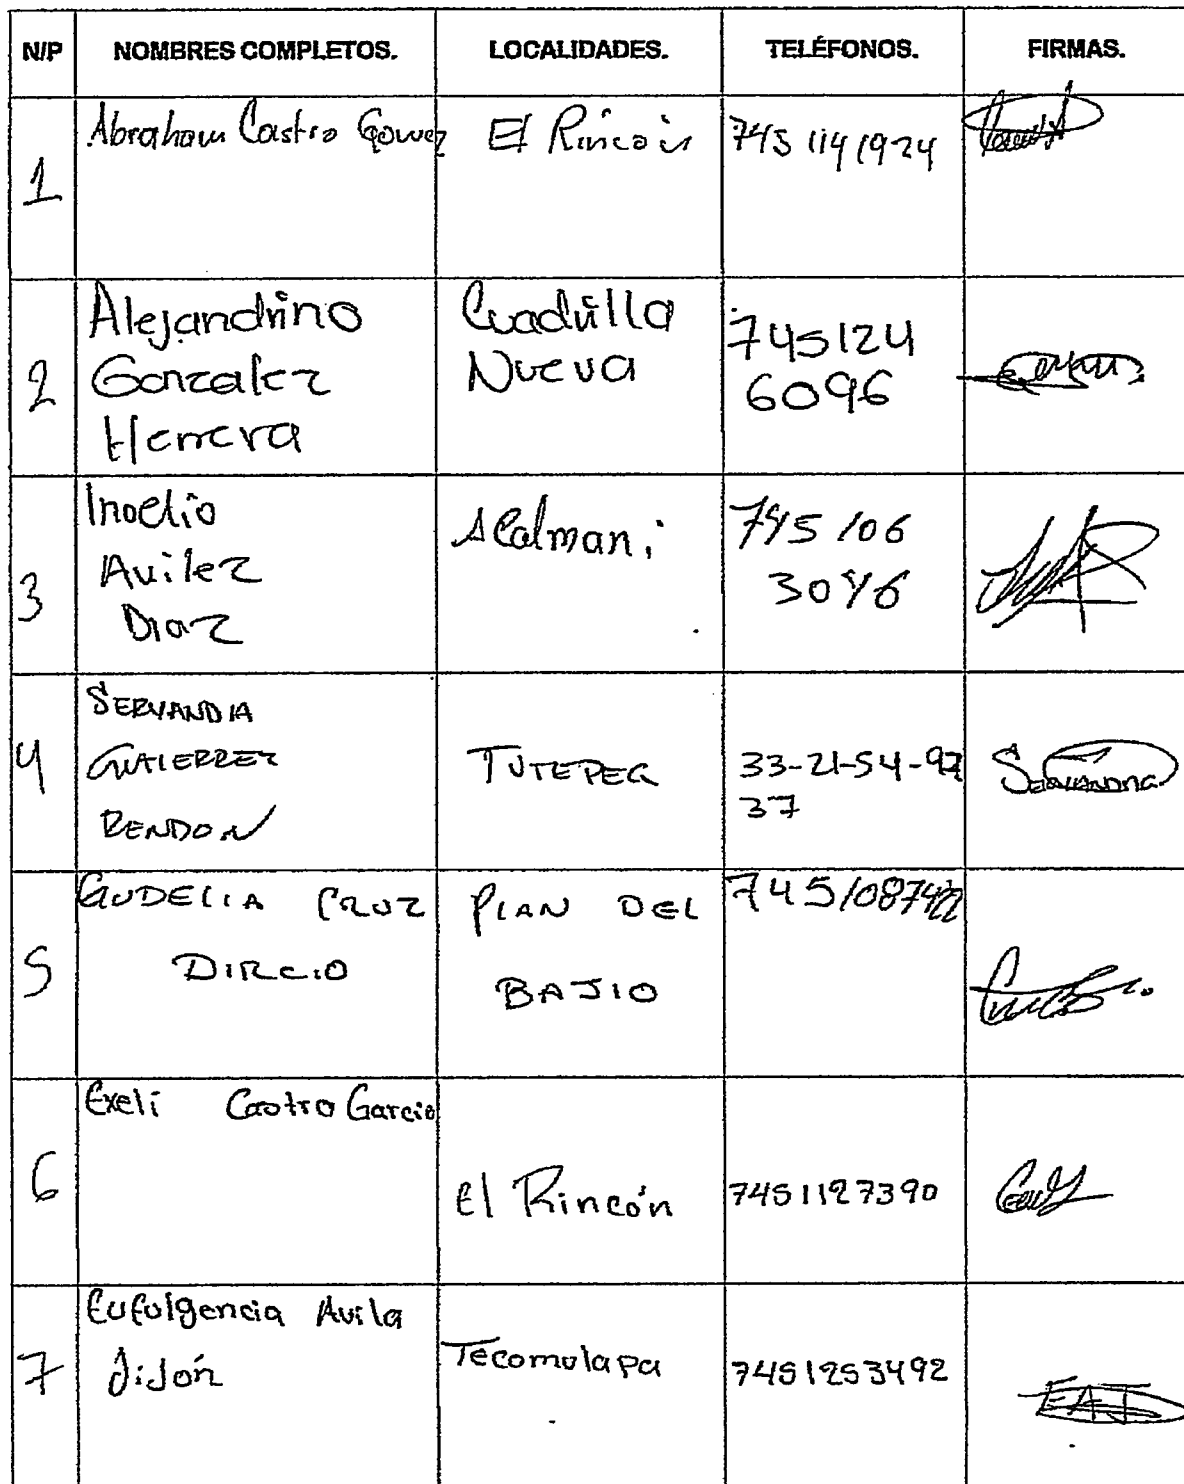 N/P NOMBRES COMPLETOS. LOCALIDADES. TELÉFONOS. FIRMAS.
1 Abraham Castro Gomez El Rincón 745 114 1924
2 Alejandrino Gonzalez Herrera Cuadrilla Nueva 745124 6096
3 Inoelio Avilez Diaz Alcalmani 745 106 3046
4 SERVANDIA GUTIERREZ RENDON TUTEPEC 33-21-54-92 37 SERVANDIA
5 GUDELIA CRUZ DIRCIO PLAN DEL BAJIO 745108742
6 Exeli Castro Garcia El Rincón 7451127390
7 Eufulgencia Avila Jijón Tecomulapa 7451253492 EAJ